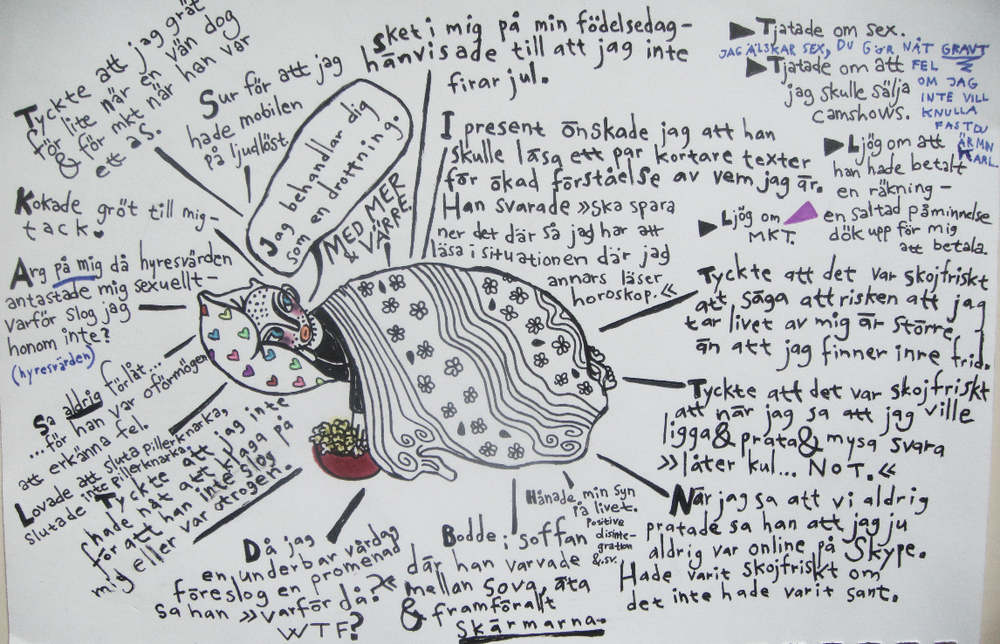 Tyckte att jag grät
för lite när en vän dog
& för mkt när han var
ett as.
Sur för att jag
hade mobilen
på ljudlöst.
Sket i mig på min födelsedag-
hänvisade till att jag inte
firar jul.
▶Tjatade om sex.
JAG ÄLSKAR SEX, DU GÖR NÅT GRAVT
FEL
OM JAG
INTE VILL
KNULLA
FAST DU
ÄR MN
KARL
▶Tjatade om att
jag skulle sälja
camshows.
▶Ljög om att
han hade betalt
en räkning-
en saltad påminnelse
dök upp för mig
att betala.
▶Ljög om
MKT.
Jag behandlar dig
som en drottning.
MED MER
& VÄRRE.
I present önskade jag att han
skulle läsa ett par kortare texter
för ökad förståelse av vem jag är.
Han svarade »Ska spara
ner det där så jag har att
läsa i situationen där jag
annars läser
horoskop.«
Kokade gröt till mig-
tack.
Arg på mig då hyresvärden
antastade mig sexuellt-
varför slog jag
honom inte?
(hyresvärden)
Sa aldrig förlåt...
...för han var oförmögen
att erkänna fel.
Lovade att sluta pillerknarka,
slutade inte pillerknarka.
Tyckte att jag inte
hade nåt att klaga på
för att han inte slog
mig eller var otrogen.
Då jag
en underbar vårdag
föreslog en promenad
sa han »varför då?«
WTF?
Bodde i soffan
där han varvade
mellan sova, äta
& framförallt
skärmarna.
Hånade min syn
på livet.
Positive
disinte-
gration
&.sv.
Tyckte att det var skojfriskt
att säga att risken att jag
tar livet av mig är större
än att jag finner inre frid.
Tyckte att det var skojfriskt
att när jag sa att jag ville
ligga & prata & mysa svara
»låter kul... NOT.«
När jag sa att vi aldrig
pratade sa han att jag ju
aldrig var online på Skype.
Hade varit skojfriskt om
det inte hade varit sant.